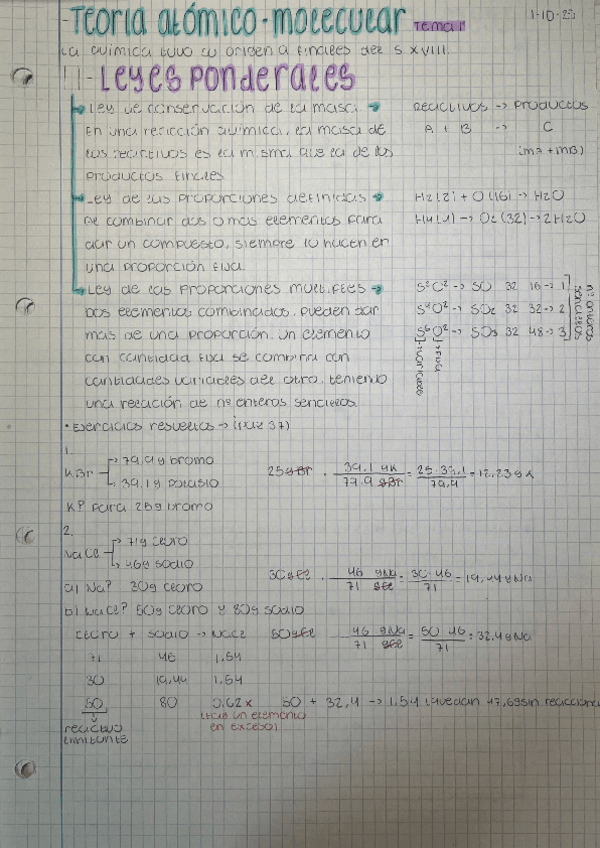 -Teoría atómico-molecular Tema 1
1-10-25
La química tuvo su origen a finales del s. XVIII.
1- Leyes Ponderales
Ley de conservación de la masa →
En una reacción química, la masa de
los reactivos es la misma que la de los
productos finales
Reactivos → Productos
A + B → C
(mA+mB)
Ley de las proporciones definidas →
Al combinar dos o más elementos para
dar un compuesto, siempre lo hacen en
una proporción fija.
H2(2) + O(16) → H2O
H4(4) → O2(32) → 2H2O
Ley de las proporciones múltiples →
Dos elementos combinados, pueden dar
más de una proporción. Un elemento
con cantidad fija se combina con
cantidades variables del otro, teniendo
una relación de nº enteros sencillos.
S²O² → SO 32 16 → 1
S⁴O² → SO2 32 32 → 2
S⁶O² → SO3 32 48 → 3
nº enteros
sencillos
variable
fija
· Ejercicios resueltos → (pag 37)
1.
KBr
79,9g bromo
39,1g potasio
K? para 25g bromo
25gBr · 39,1 gK / 79,9 gBr = 25·39,1 / 79,9 = 12,23g K
2.
NaCl
71g cloro
46g sodio
a) Na? 30g cloro
30gCl · 46 gNa / 71 gCl = 30·46 / 71 = 19,44gNa
b) NaCl? 50g cloro y 80g sodio
cloro + sodio → NaCl
50gCl 46 gNa / 71 gCl = 50·46 / 71 = 32,4gNa
71 46 1,54
30 19,44 1,54
50 80 0,62 x
50 + 32,4 → 1,54 (quedan 47,6g sin reaccionar
reactivo
limitante
(hay un elemento
en exceso)